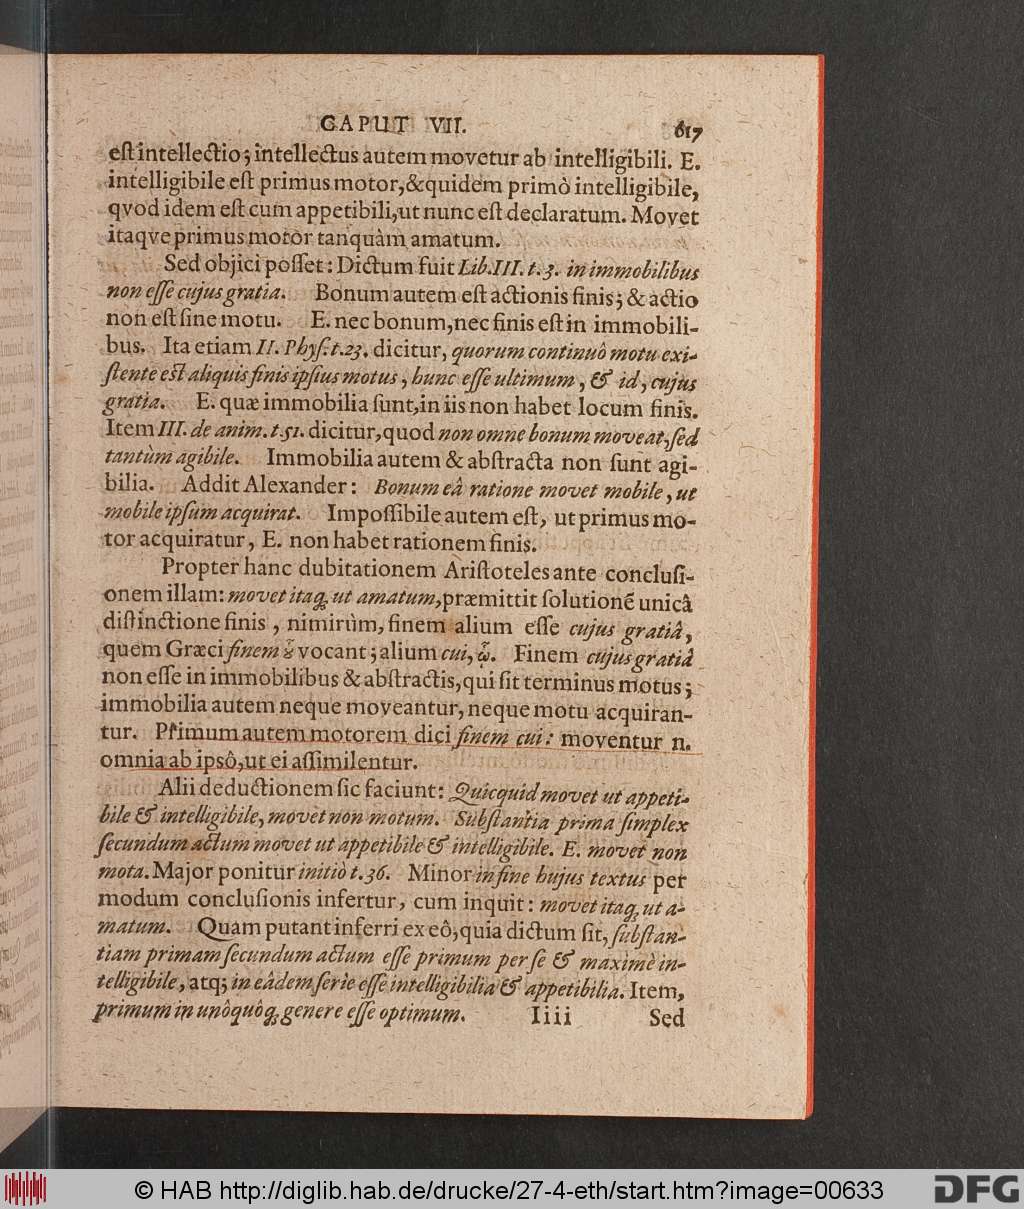 CAPUT VII. 617
eſt intellectio; intellectus autem movetur ab intelligibili. E.
intelligibile eſt primus motor, & quidem primò intelligibile,
qvod idem eſt cum appetibili, ut nunc eſt declaratum. Movet
itaqve primus motor tanquàm amatum.
Sed objici poſſet: Dictum fuit Lib. III. t. 3. in immobilibus
non eſſe cujus gratia. Bonum autem eſt actionis finis; & actio
non eſt ſine motu. E. nec bonum, nec finis eſt in immobili-
bus. Ita etiam II. Phyſ. t. 23. dicitur, quorum continuô motu exi-
ſtente eſt aliquis finis ipſius motus, hunc eſſe ultimum, & id, cujus
gratia. E. quæ immobilia ſunt, in iis non habet locum finis.
Item III. de anim. t. 51. dicitur, quod non omne bonum moveat, ſed
tantùm agibile. Immobilia autem & abſtracta non ſunt agi-
bilia. Addit Alexander: Bonum eâ ratione movet mobile, ut
mobile ipſum acquirat. Impoſſibile autem eſt, ut primus mo-
tor acquiratur, E. non habet rationem finis.
Propter hanc dubitationem Ariſtoteles ante concluſi-
onem illam: movet itaq; ut amatum, præmittit ſolutionẽ unicâ
diſtinctione finis, nimirùm, finem alium eſſe cujus gratiâ,
quem Græci finem ȣ̃ vocant; alium cui, ᾧ. Finem cujus gratiâ
non eſſe in immobilibus & abſtractis, qui ſit terminus motus;
immobilia autem neque moveantur, neque motu acquiran-
tur. Primum autem motorem dici finem cui: moventur n.
omnia ab ipsô, ut ei aſſimilentur.
Alii deductionem ſic faciunt: Quicquid movet ut appeti-
bile & intelligibile, movet non motum. Subſtantia prima ſimplex
ſecundum actum movet ut appetibile & intelligibile. E. movet non
mota. Major ponitur initiò t. 36. Minor in fine hujus textus per
modum concluſionis infertur, cum inquit: movet itaq; ut a-
matum. Quam putant inferri ex eô, quia dictum ſit, ſubſtan-
tiam primam ſecundum actum eſſe primum per ſe & maximè in-
telligibile, atq; in eâdem ſerie eſſe intelligibilia & appetibilia. Item,
primum in unôquôq; genere eſſe optimum. Iiii Sed
© HAB http://diglib.hab.de/drucke/27-4-eth/start.htm?image=00633 DFG